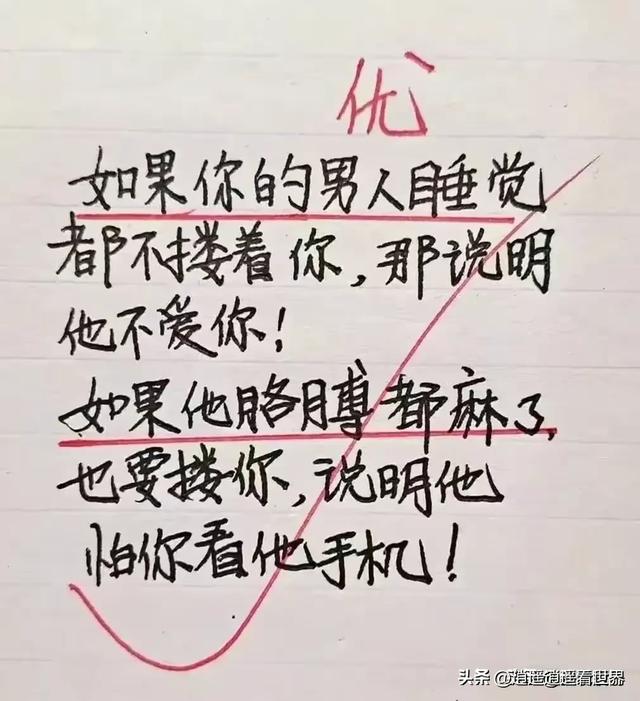 优
如果你的男人睡觉
都不搂着你,那说明
他不爱你!
如果他胳膊都麻了,
也要搂你,说明他
怕你看他手机!
头条 @逍遥逍遥看世界